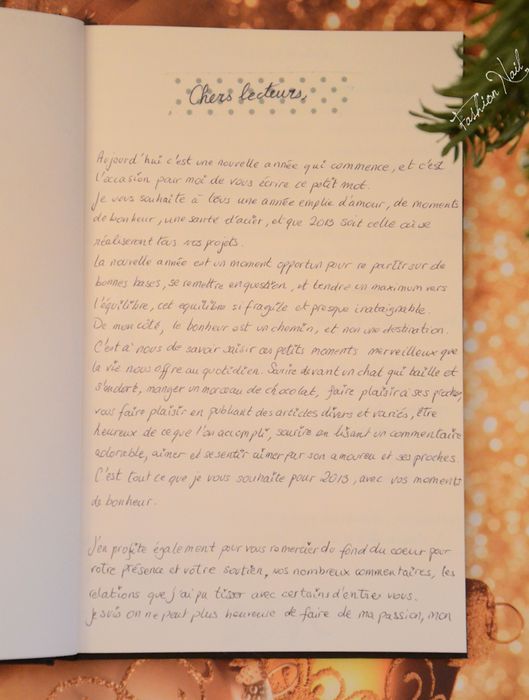 Chers lecteurs,
Fashion Nail
Aujourd'hui c'est une nouvelle année qui commence, et c'est
l'occasion pour moi de vous écrire ce petit mot.
Je vous souhaite à tous une année emplie d'amour, de moments
de bonheur, une santé d'acier, et que 2013 soit celle où se
réaliseront tous vos projets.
La nouvelle année est un moment opportun pour repartir sur de
bonnes bases, se remettre en question, et tendre un maximum vers
l'équilibre, cet equilibre si fragile et presque inateignable.
De mon côté, le bonheur est un chemin, et non une destination.
C'est à nous de savoir saisir ces petits moments merveilleux que
la vie nous offre au quotidien. Sourire devant un chat qui baille et
s'endort, manger un morceau de chocolat, faire plaisir à ses proches,
vous faire plaisir en publiant des articles divers et variés, être
heureux de ce que l'on accompli, sourire en lisant un commentaire
adorable, aimer et se sentir aimer par son amoureu et ses proches.
C'est tout ce que je vous souhaite pour 2013, avec vos moments
de bonheur.
J'en profite également pour vous remercier du fond du coeur pour
votre présence et votre soutien, vos nombreux commentaires, les
relations que j'ai pu tisser avec certains d'entre vous.
Je suis on ne peut plus heureuse de faire de ma passion, mon